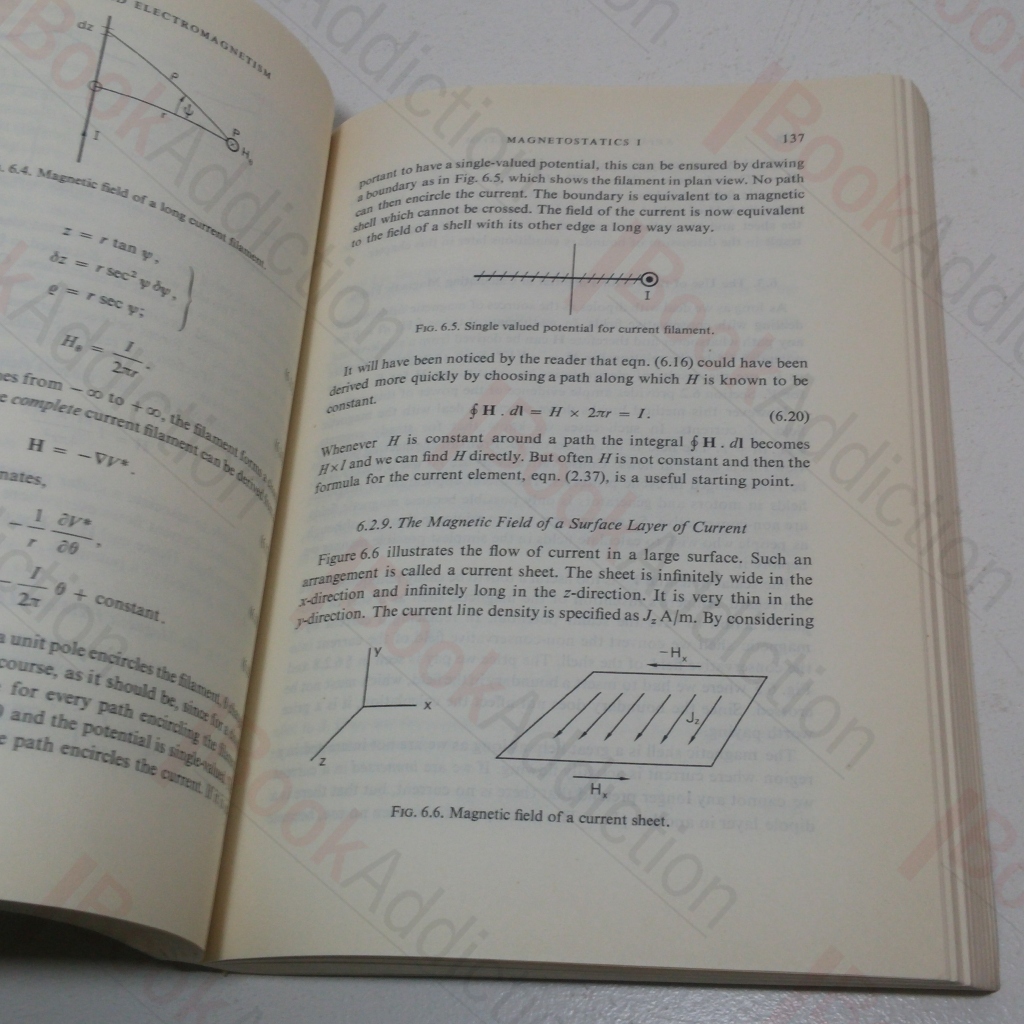 ELECTROMAGNETISM
dz
ρ
ψ
r
P
H
I
6.4. Magnetic field of a long current filament.
z = r tan ψ,
δz = r sec² ψ δψ,
ϱ = r sec ψ;
H = I / 2πr .
from − ∞ to + ∞, the filament forms a
complete current filament can be derived from
H = −∇V*.
− 1/r ∂V*/∂θ ,
I/2π θ + constant.
unit pole encircles the filament,
course, as it should be, since for a
for every path encircling the
and the potential is single-valued
path encircles the current. If
MAGNETOSTATICS I 137
portant to have a single-valued potential, this can be ensured by drawing
a boundary as in Fig. 6.5, which shows the filament in plan view. No path
can then encircle the current. The boundary is equivalent to a magnetic
shell which cannot be crossed. The field of the current is now equivalent
to the field of a shell with its other edge a long way away.
I
FIG. 6.5. Single valued potential for current filament.
It will have been noticed by the reader that eqn. (6.16) could have been
derived more quickly by choosing a path along which H is known to be
constant.
∮ H . dl = H × 2πr = I. (6.20)
Whenever H is constant around a path the integral ∮ H . dl becomes
H×l and we can find H directly. But often H is not constant and then the
formula for the current element, eqn. (2.37), is a useful starting point.
6.2.9. The Magnetic Field of a Surface Layer of Current
Figure 6.6 illustrates the flow of current in a large surface. Such an
arrangement is called a current sheet. The sheet is infinitely wide in the
x-direction and infinitely long in the z-direction. It is very thin in the
y-direction. The current line density is specified as Jz A/m. By considering
y
x
z
−Hx
Jz
Hx
FIG. 6.6. Magnetic field of a current sheet.
BookAddiction